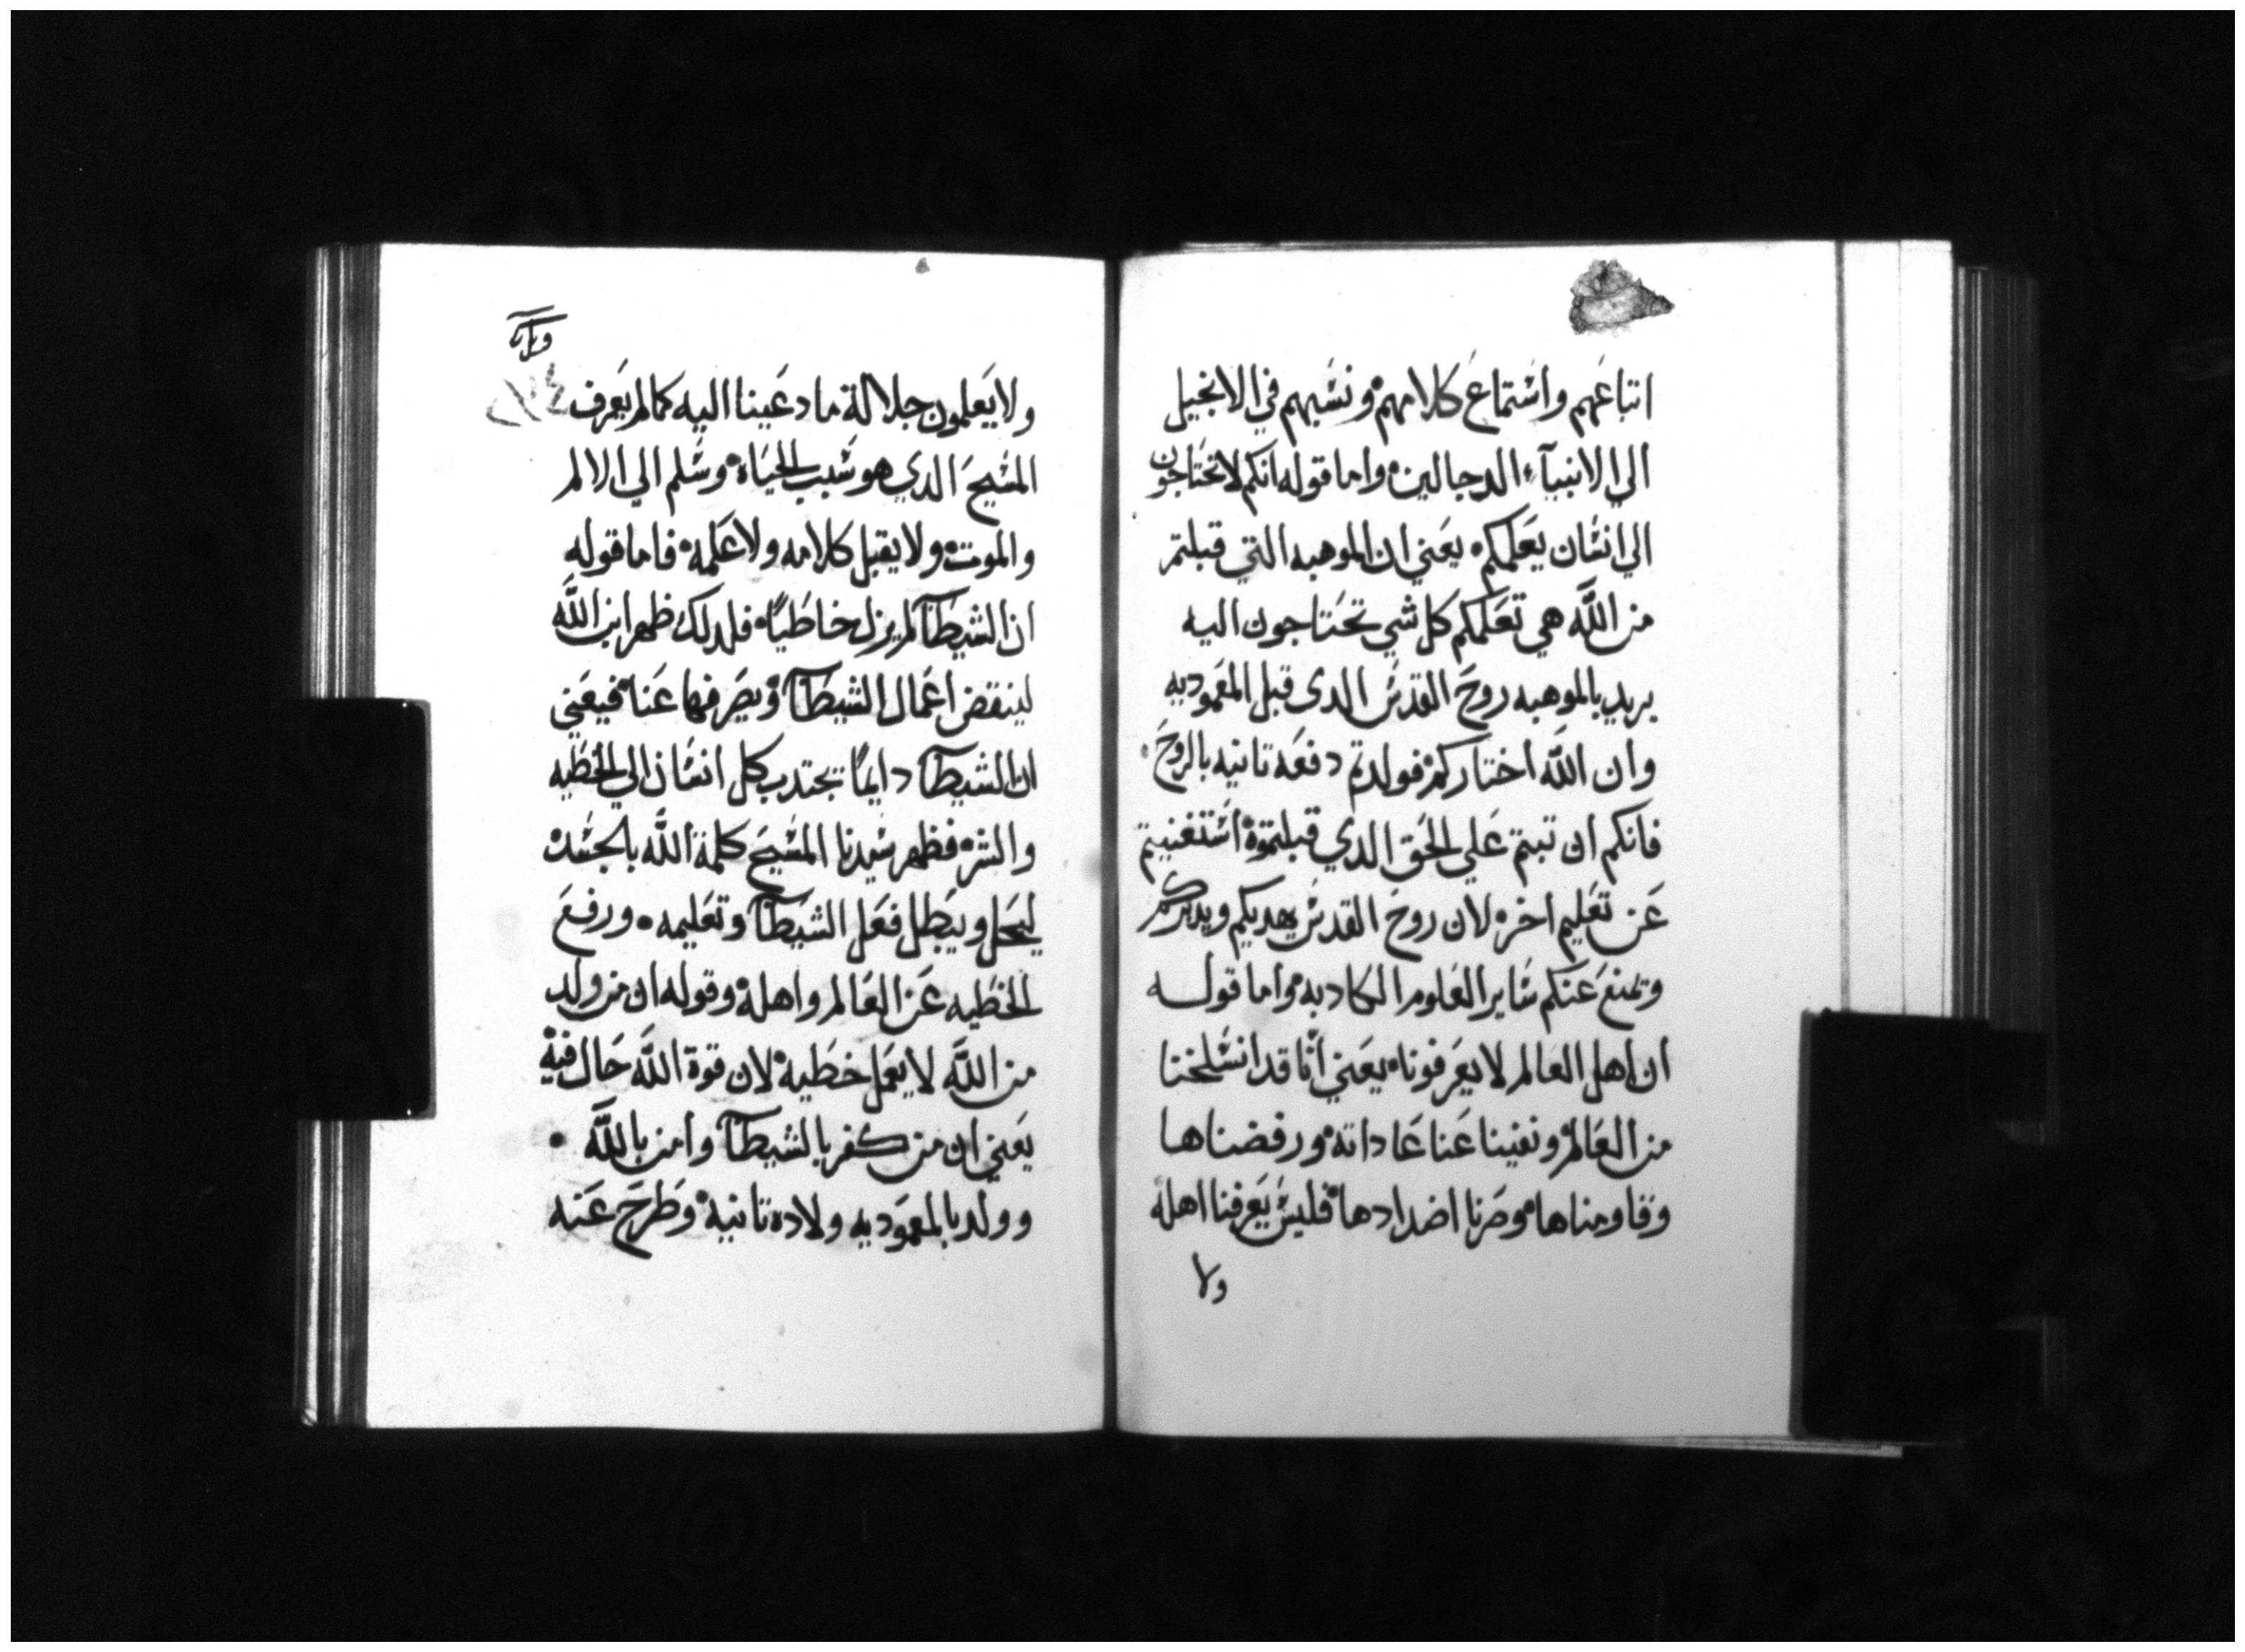 اتباعهم واستماع كلامهم ونسبهم في الانجيل
الي الانبيآء الدجالين واما قوله انكم لا تحتاجون
الي انسان يعلمكم يعني ان الموهبه التي قبلتم
من اللَّه هي تعلمكم كل شي تحتاجون اليه
يريد بالموهبه روح القدس الدى قبل المعموديه
وان اللَّه اختاركم فولدتم دفعه تانيه بالروح
فانكم ان تبتم علي الحق الدي قبلتموة استغنيتم
عن تعليم اخر لان روح القدس يهديكم ويدكركم
وتمنع عنكم ساير العلوم الكادبه واما قوله
ان اهل العالم لا يعرفونا يعني انَّا قد انسلخنا
من العالم ونفينا عنا عاداته ورفضناها
وقاومناها وصرنا اضدادها فليس يعرفنا اهله
ولا
ولا يعلمون جلالة ما دعينا اليه كما لم يعرف
المسيح الدي هو سبب الحياة وسلم الي الالم
والموت ولا يقبل كلامه ولا علمه فاما قوله
ان الشيطآن لم يزل خاطيًا فلدلك ظهر ابن اللَّه
لينقض اعمال الشيطآن ويصرفها عنا فيعني
ان الشيطآن دايمًا يجتدب كل انسان الي الخطيه
والشر فظهر سيدنا المسيح كلمة اللَّه بالجسد
ليحل ويبطل فعل الشيطآن وتعليمه ورفع
الخطيه عن العالم واهله وقوله ان من ولد
من اللَّه لا يعمل خطيه لان قوة اللَّه حال فيه
يعني ان من كفر بالشيطآن وامن باللَّه
وولد بالمعموديه ولاده تانيه وطرح عنه